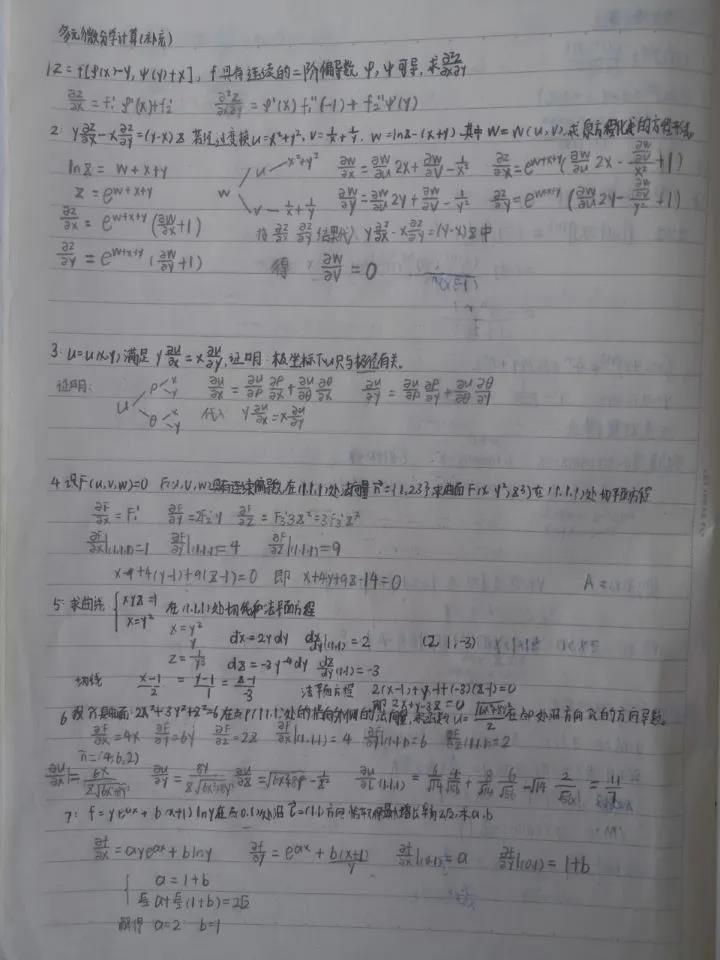 多元微分学计算(补充)
1 Z=f[φ(x)-y, ψ(y)+x], f具有连续的二阶偏导数, φ,ψ可导,求∂²z/∂x∂y
∂z/∂x = f₁' φ'(x)+f₂' ∂²z/∂x∂y = φ'(x) f₁''(-1) + f₂'' ψ'(y)
2. y∂z/∂x-x∂z/∂y=(y-x)z 若经过变换u=x²+y², v=1/x+1/y, w=lnz-(x+y) 其中w=w(u,v),求原方程化成的方程形式
lnz = w+x+y w u x²+y² ∂w/∂x=∂w/∂u 2x+∂w/∂v -1/x² ∂z/∂x=e^(w+x+y)(∂w/∂u 2x-(∂w/∂v)/x²+1)
z = e^(w+x+y) v 1/x+1/y ∂w/∂y=∂w/∂u 2y+∂w/∂v -1/y² ∂z/∂y=e^(w+x+y)(∂w/∂u 2y-(∂w/∂v)/y²+1)
∂z/∂x = e^(w+x+y)(∂w/∂x+1) 将∂z/∂x ∂z/∂y结果代入 y∂z/∂x-x∂z/∂y=(y-x)z中
∂z/∂y = e^(w+x+y)(∂w/∂y+1) 得 ∂w/∂v = 0
3. u=u(x,y)满足 y∂u/∂x = x∂u/∂y, 证明:极坐标下u只与极径有关。
证明: u ρ x y ∂u/∂x = ∂u/∂ρ ∂ρ/∂x+∂u/∂θ ∂θ/∂x ∂u/∂y = ∂u/∂ρ ∂ρ/∂y+∂u/∂θ ∂θ/∂y
θ x y 代入 y∂u/∂x=x∂u/∂y
4 设F(u,v,w)=0 F(u,v,w)具有连续偏导数,在(1,1,1)处法向量n={1,2,3}求曲面F(x,y²,z³)在(1,1,1)处切平面方程
∂F/∂x = F₁' ∂F/∂y=2F₂'y ∂F/∂z = F₃'3z²=3F₃'z²
∂F/∂x|(1,1,1)=1 ∂F/∂y|(1,1,1)=4 ∂F/∂z|(1,1,1)=9
x-1+4(y-1)+9(z-1)=0 即 x+4y+9z-14=0 A=
5. 求曲线 { xyz=1 x=y² 在(1,1,1)处切线和法平面方程
x=y²
y dx=2ydy dx/dy|(1,1)=2 (2,1,-3)
z=1/y³ dz=-3y⁻⁴dy dz/dy|(1,1)=-3
切线 (x-1)/2 = (y-1)/1 = (z-1)/-3 法平面方程 2(x-1)+y-1+(-3)(z-1)=0
即 2x+y-3z=0
6 设n是曲面2x²+3y²+z²=6在点P(1,1,1)处的指向外侧的法向量,求函数u=√(6x²+8y²)/z在点P处沿方向n的方向导数。
∂F/∂x=4x ∂F/∂y=6y ∂F/∂z=2z ∂F/∂x|(1,1,1)=4 ∂F/∂y|(1,1,1)=6 ∂F/∂z|(1,1,1)=2
n=(4,6,2)
∂u/∂x=6x/(z√(6x²+8y²)) ∂u/∂y=8y/(z√(6x²+8y²)) ∂u/∂z=√(6x²+8y²) -1/z² ∂u/∂l|(1,1,1)=6/√14 4/√56+8/√14 6/√56-√14 2/√56=11/7
7: f=ye^(ax)+b(x+1)lny在点(0,1)处沿l=(1,1)方向 最大增长率为2√2,求a,b
∂f/∂x=aye^(ax)+blny ∂f/∂y=e^(ax)+b(x+1)/y ∂f/∂x|(0,1)=a ∂f/∂y|(0,1)=1+b
{ a=1+b
√2/2 a+√2/2(1+b)=2√2
解得 a=2 b=1